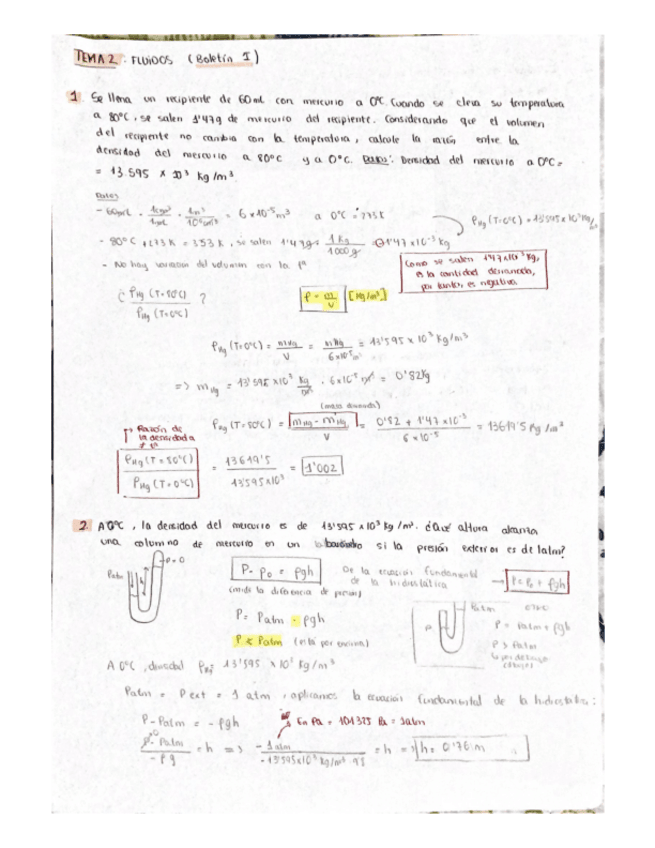 TEMA 2. FLUIDOS (Boletín I)
1. Se llena un recipiente de 60 mL con mercurio a 0°C. Cuando se eleva su temperatura
a 80°C, se salen 1'47g de mercurio del recipiente. Considerando que el volumen
del recipiente no cambia con la temperatura, calcule la razón entre la
densidad del mercurio a 80°C y a 0°C. Datos: Densidad del mercurio a 0°C =
= 13.595 x 10³ kg/m³.
- 60mL · = 6 x 10⁻⁵ m³ a 0°C = 273K
ρHg (T=0°C) = 13'595 x 10³ kg/m³
- 80°C + 273 K = 353 K, se salen 1'47g · 1Kg / 1000g = 1'47 x 10⁻³ kg
- No hay variacion del volumen con la Tª
Como se salen 1'47x10⁻³ kg,
es la cantidad derramada,
por tanto, es negativa.
¿ ρHg (T=80°C) / ρHg (T=0°C) ?
ρ = m/V [kg/m³]
ρHg (T=0°C) = mHg / V = mHg / 6x10⁻⁵ m³ = 13'595 x 10³ kg/m³
=> mHg = 13'595 x10³ kg/m³ · 6x10⁻⁵ m³ = 0'82kg
(masa derramada)
ρHg (T=80°C) = mHg - mHg / V = 0'82 + 1'47 x 10⁻³ / 6 x 10⁻⁵ = 13619'5 kg/m³
Razón de
la densidad a
≠ Tª
ρHg (T=80°C) / ρHg (T=0°C) = 13619'5 / 13'595x10³ = 1'002
2. A 0°C, la densidad del mercurio es de 13'595 x 10³ kg/m³. ¿Qué altura alcanza
una columna de mercurio en un barómetro si la presión exterior es de 1atm?
Patm
P=0
P - P₀ = ρgh
De la ecuación fundamental
de la hidrostática
P = P₀ + ρgh
(mide la diferencia de presión)
P = Patm - ρgh
P < Patm (está por encima)
Patm
P
P = Patm + ρgh
P > Patm
A 0°C, densidad ρHg = 13'595 x 10³ kg/m³
Patm = Pext = 1 atm, aplicamos la ecuación fundamental de la hidrostática:
P - Patm = - ρgh
En Pa = 101325 Pa = 1atm
P - Patm / - ρg = h => - 1 atm / - 13'595x10³ kg/m³ · 9'8 = h => h = 0'76 m